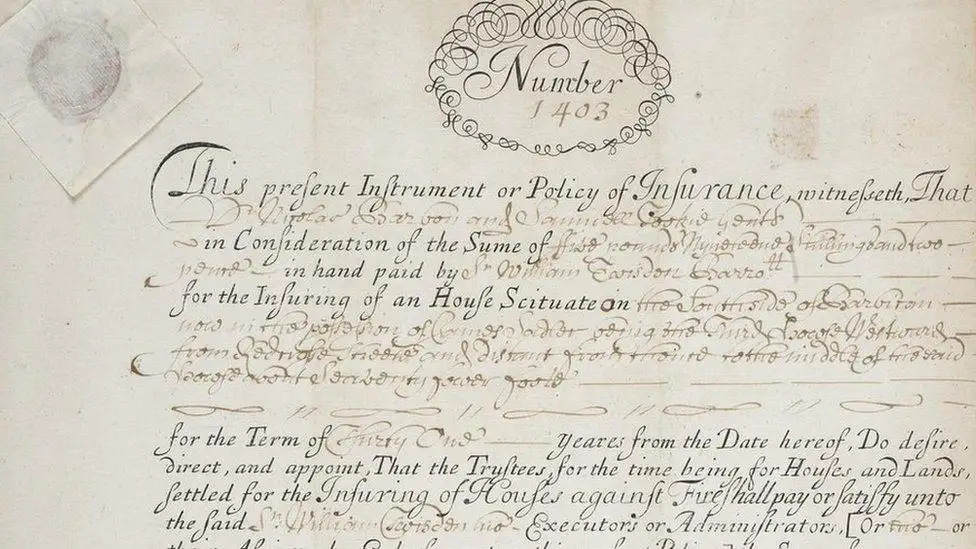 Number
1403
This present Instrument or Policy of Insurance, witnesseth, That
Dr Nicolas Barbon and Samuell Tookie Gents
in Consideration of the Sume of five pounds Nyneteene Shillings and two
pence in hand paid by Sr William Twisden Barrott
for the Insuring of an House Scituate in the South side of Barbican
now in the possession of James Sadler being the Third House Westward
from Redcrosse Streete and distant from thence to the middle of the said
House about Seaventy fower foote
for the Term of Thirty One yeares from the Date hereof, Do desire,
direct, and appoint, That the Trustees, for the time being for Houses and Lands,
settled for the Insuring of Houses against Fire shall pay or satisfy unto
the said Sr William Twisden his Executors or Administrators, [Or the or